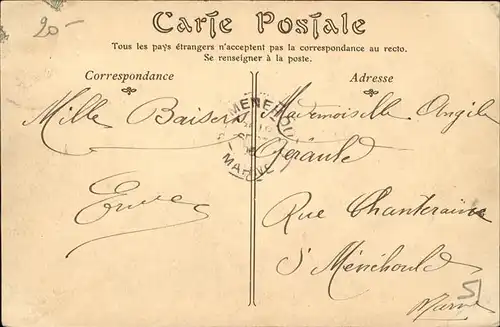 20-
Carte Postale
Tous les pays étrangers n'acceptent pas la correspondance au recto.
Se renseigner à la poste.
Correspondance
Adresse
Mille Baisers
Mademoiselle Angèle
Gérault
Rue Chanteraine
Sᵗ Ménéhould
Marne
MENEHOU
MARNE
5